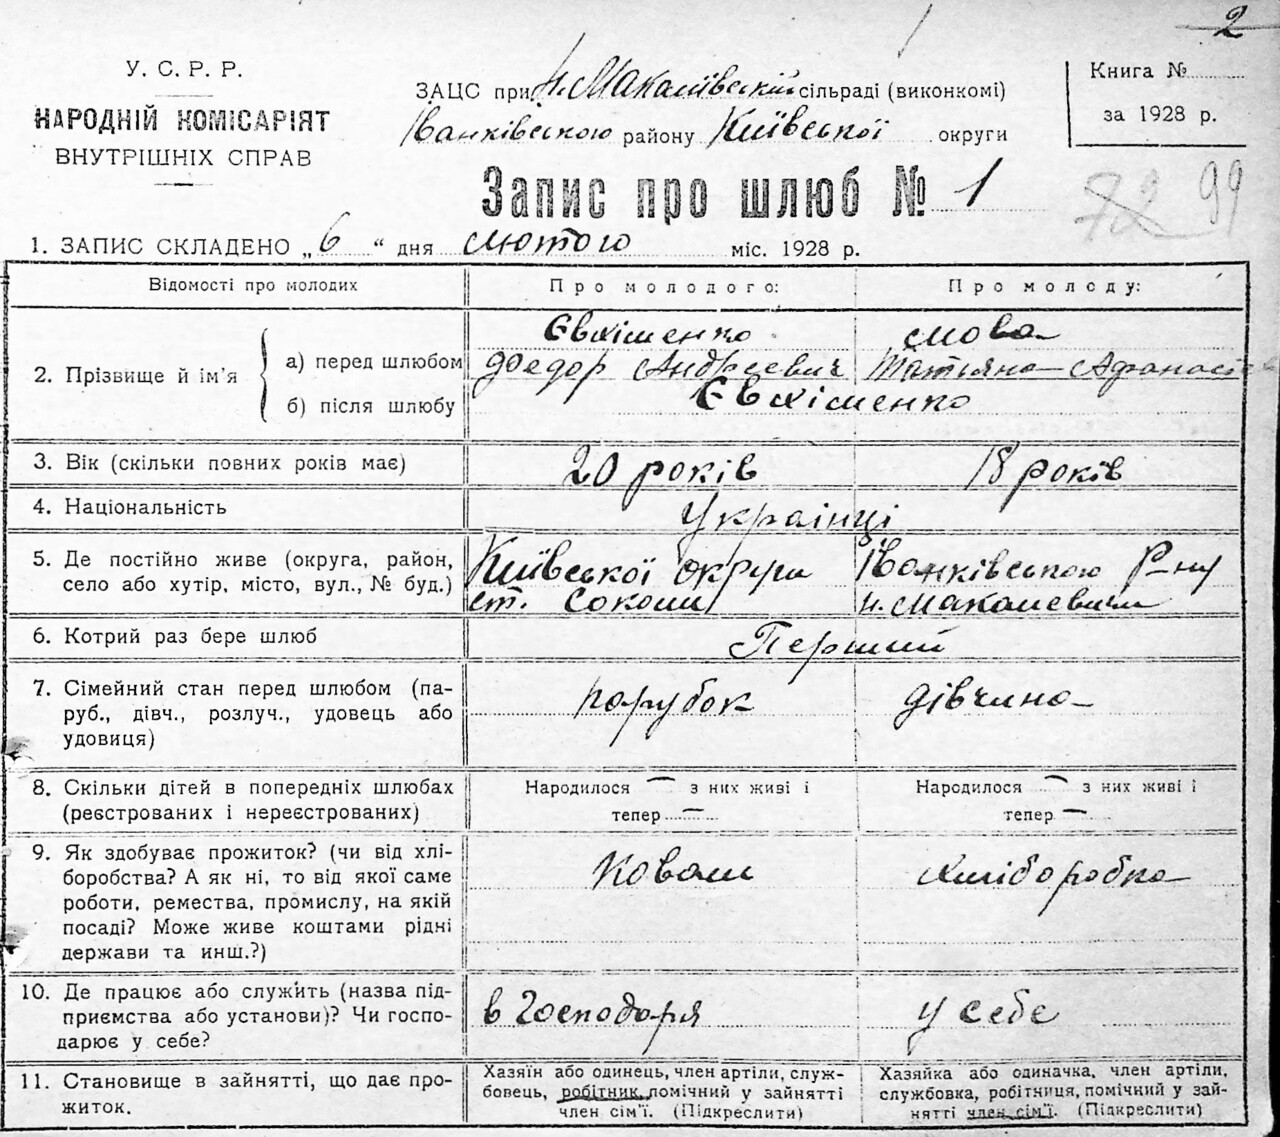 2
У. С. Р. Р.
НАРОДНІЙ КОМІСАРІЯТ
ВНУТРІШНІХ СПРАВ
ЗАЦС при Н. Макалівській сільраді (виконкомі)
Іванківською району Київської округи
Книга №
за 1928 р.
Запис про шлюб № 1
72 99
1. ЗАПИС СКЛАДЕНО „6“ дня лютого міс. 1928 р.
Відомості про молодих
Про молодого:
Про молоду:
2. Прізвище й ім’я
а) перед шлюбом
б) після шлюбу
Євхіменко
Федор Андреевич
Татьяна Афанасіє
Євхіменко
3. Вік (скільки повних років має)
20 років
18 років
4. Національність
Украінці
5. Де постійно живе (округа, район,
село або хутір, місто, вул., № буд.)
Київської округи
ст.
Іванківською Р-ну
н. Макалевичи
6. Котрий раз бере шлюб
Перший
7. Сімейний стан перед шлюбом (па-
руб., дівч., розлуч., удовець або
удовиця)
порубок
дівчина
8. Скільки дітей в попередніх шлюбах
(реєстрованих і нереєстрованих)
Народилося — з них живі і
тепер —
Народилося — з них живі і
тепер —
9. Як здобуває прожиток? (чи від хлі-
боробства? А як ні, то від якої саме
роботи, ремества, промислу, на якій
посаді? Може живе коштами рідні
держави та инш.?)
Коваль
хліборобка
10. Де працює або служить (назва під-
приємства або установи)? Чи госпо-
дарює у себе?
в Господоря
у себе
11. Становище в зайнятті, що дає про-
житок.
Хазяїн або одинець, член артілі, служ-
бовець, робітник, помічний у зайнятті
член сім’ї. (Підкреслити)
Хазяйка або одиначка, член артіли,
службовка, робітниця, помічний у зай-
нятті член сім’ї. (Підкреслити)